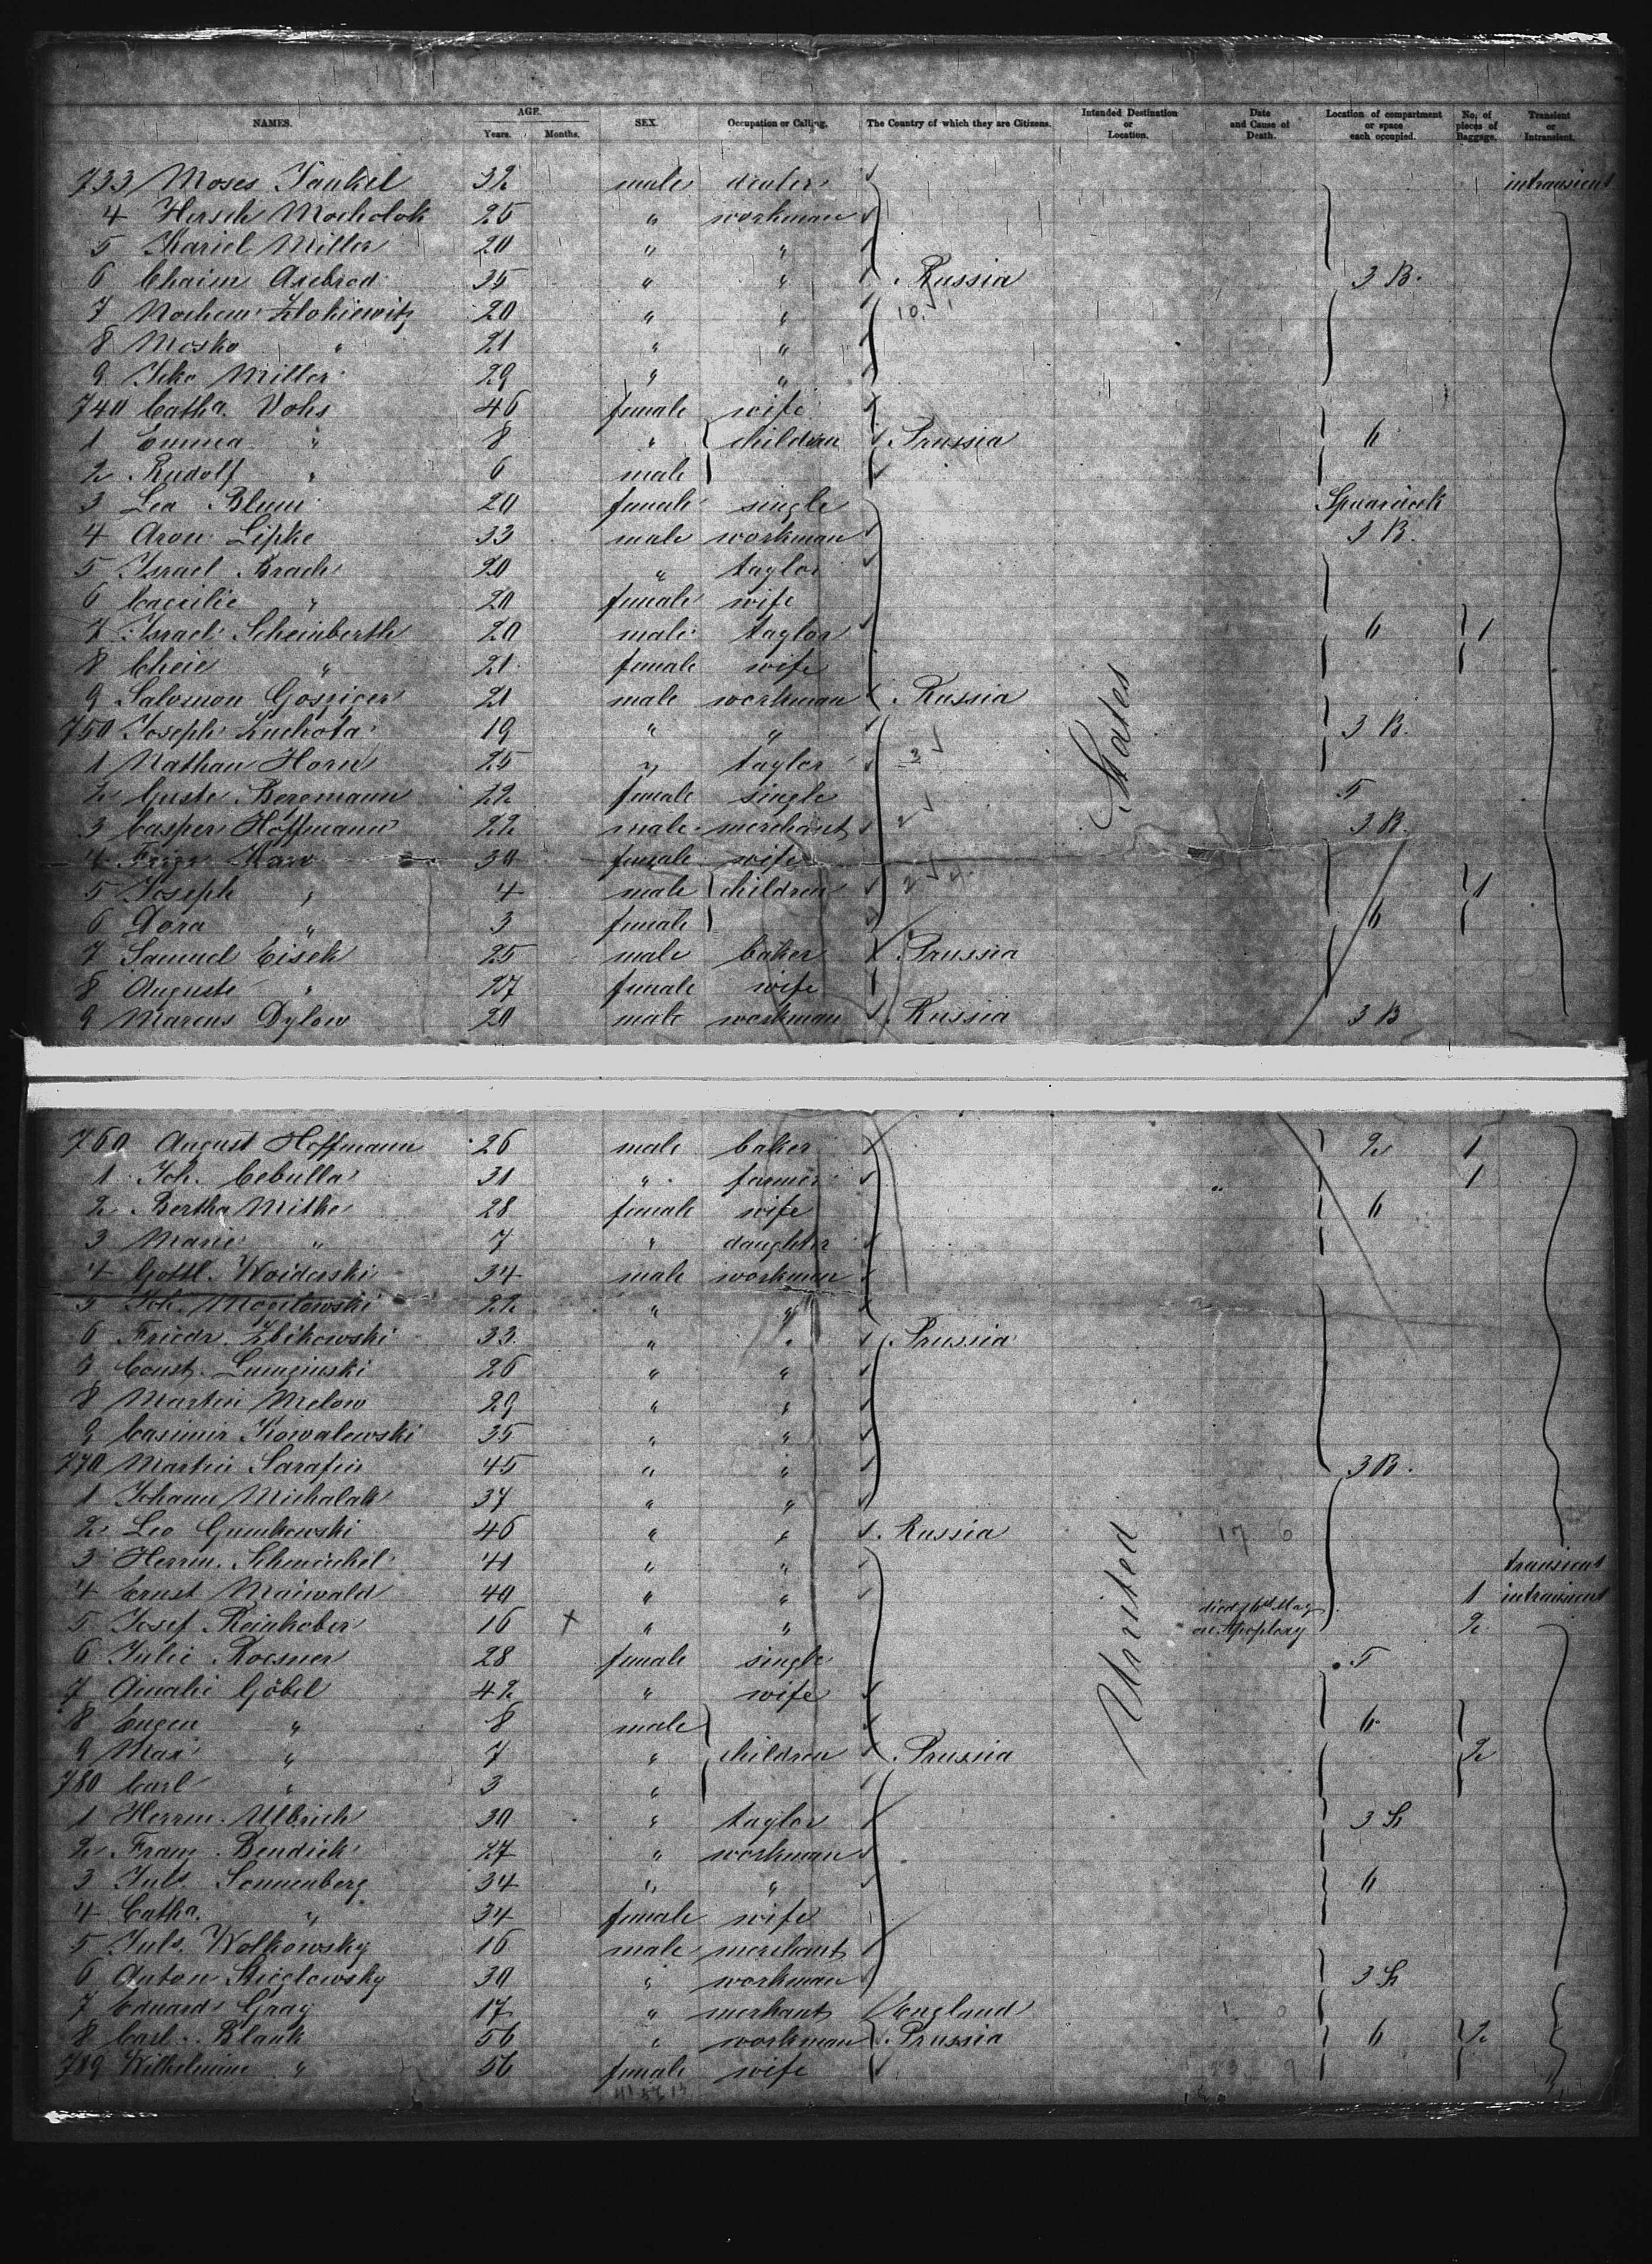 NAMES. AGE. Years. Months. SEX. Occupation or Calling. The Country of which they are Citizens. Intended Destination or Location. Date and Cause of Death. Location of compartment or space each occupied. No. of pieces of Baggage. Transient or Intransient.
733 Moses Jankel 32 male dealer intransient
4 Hersch Mocholok 25 " workman
5 Kariel Miller 20 " "
6 Chaim Axelrod 35 " " Russia 3 B.
7 Nochem Zlokiewitz 20 " " 10
8 Mosko " 21 " "
9 Icko Miller 29 " "
740 Catha. Vohs 46 female wife
1 Emma " 8 " children Prussia 6
2 Rudolf " 6 male
3 Lea Blum 20 female single
4 Aron Lipke 33 male workman 3 B.
5 Israel Brach 20 " taylor
6 Caecilie " 20 female wife
7 Israel Scheinberth 20 male taylor 6 1
8 Cheie " 21 female wife
9 Salomon 21 male workman Russia
750 Joseph Zuchota 19 " " 3 B.
1 Nathan Horn 25 " taylor 3
2 Guste Bergmann 22 female single 5
3 Casper Hoffmann 22 male merchant 2 3 B.
4 30 female wife
5 Joseph " 4 male children 2 1
6 Dora " 3 female 6
7 Samuel Eisek 25 male baker Prussia
8 Auguste " 27 female wife
9 Marcus Dylow 20 male workman Russia 3 B
States
760 August Hoffmann 26 male baker 2 1
1 Joh. Cebulla 31 " farmer 1
2 Bertha Mithe 28 female wife 6
3 Marie " 7 " daughter
4 Gottl. Woiderski 34 male workman
5 Joh. Mogilowski 22 " "
6 Friedr. Zbikowski 33 " " Prussia
7 Const. Lumginski 26 " "
8 Martin Melow 29 " "
9 Casimir Kowalewski 35 " "
770 Martin Sarafin 45 " " 3 B.
1 Johann Michalak 37 " "
2 Leo Gumkowski 46 " " Russia 17 6
3 Herrm. Schmichel 41 " " transient
4 Ernst Maiwald 40 " " 1 intransient
5 Josef Reinhober 16 + " " died May on Apoplexy 2
6 Julie Roesner 28 female single 5
7 Amalie Göbel 42 " wife
8 Eugen " 8 male 6
9 Max " 7 " children Prussia 2
780 Carl " 3 "
1 Herrm. Ulbrich 30 " taylor 3 S
2 Franz Bendick 27 " workman
3 Juls. Sonnenberg 34 " " 6
4 Catha. " 34 female wife
5 Juls. Wolkowsky 16 male merchant
6 Anton Stieglowsky 30 " workman 3 S
7 Eduard Gray 17 " merhant England
8 Carl Blank 56 " workman Prussia 6 2
789 Wilhelmine " 56 female wife
United